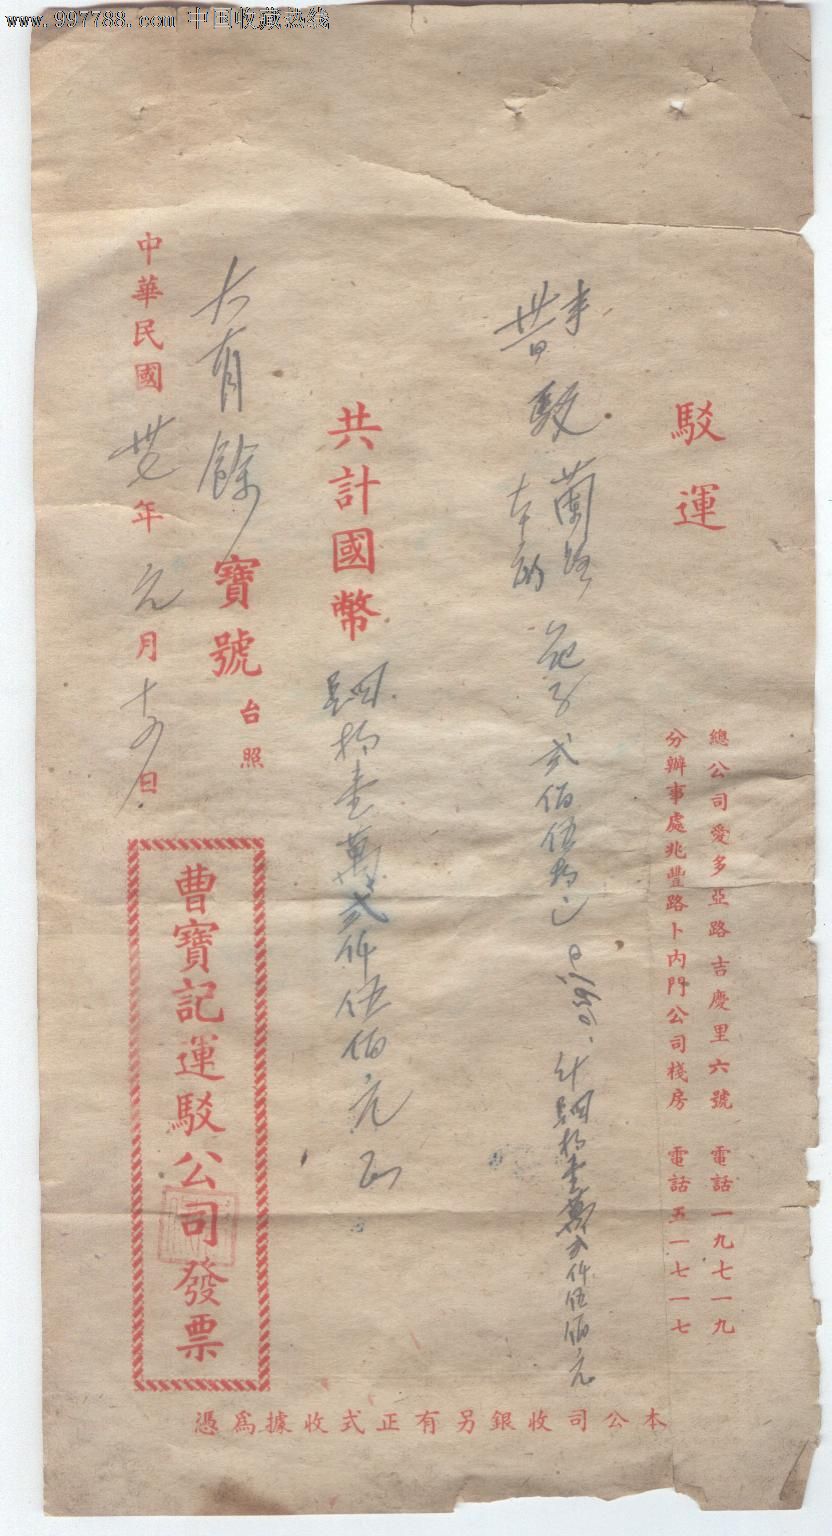 www.997788.com 中国收藏热线
駁運
總公司愛多亞路吉慶里六號 電話一九七一九
分辦事處兆豐路卜內門公司棧房 電話五一七一七
駁
蘭路
貳佰伍拾
計 肆拾壹萬貳仟伍佰元
共計國幣 肆拾壹萬貳仟伍佰元正
大有餘寶號台照
中華民國卅七年元月十四日
曹寶記運駁公司發票
本公司收銀另有正式收據爲憑